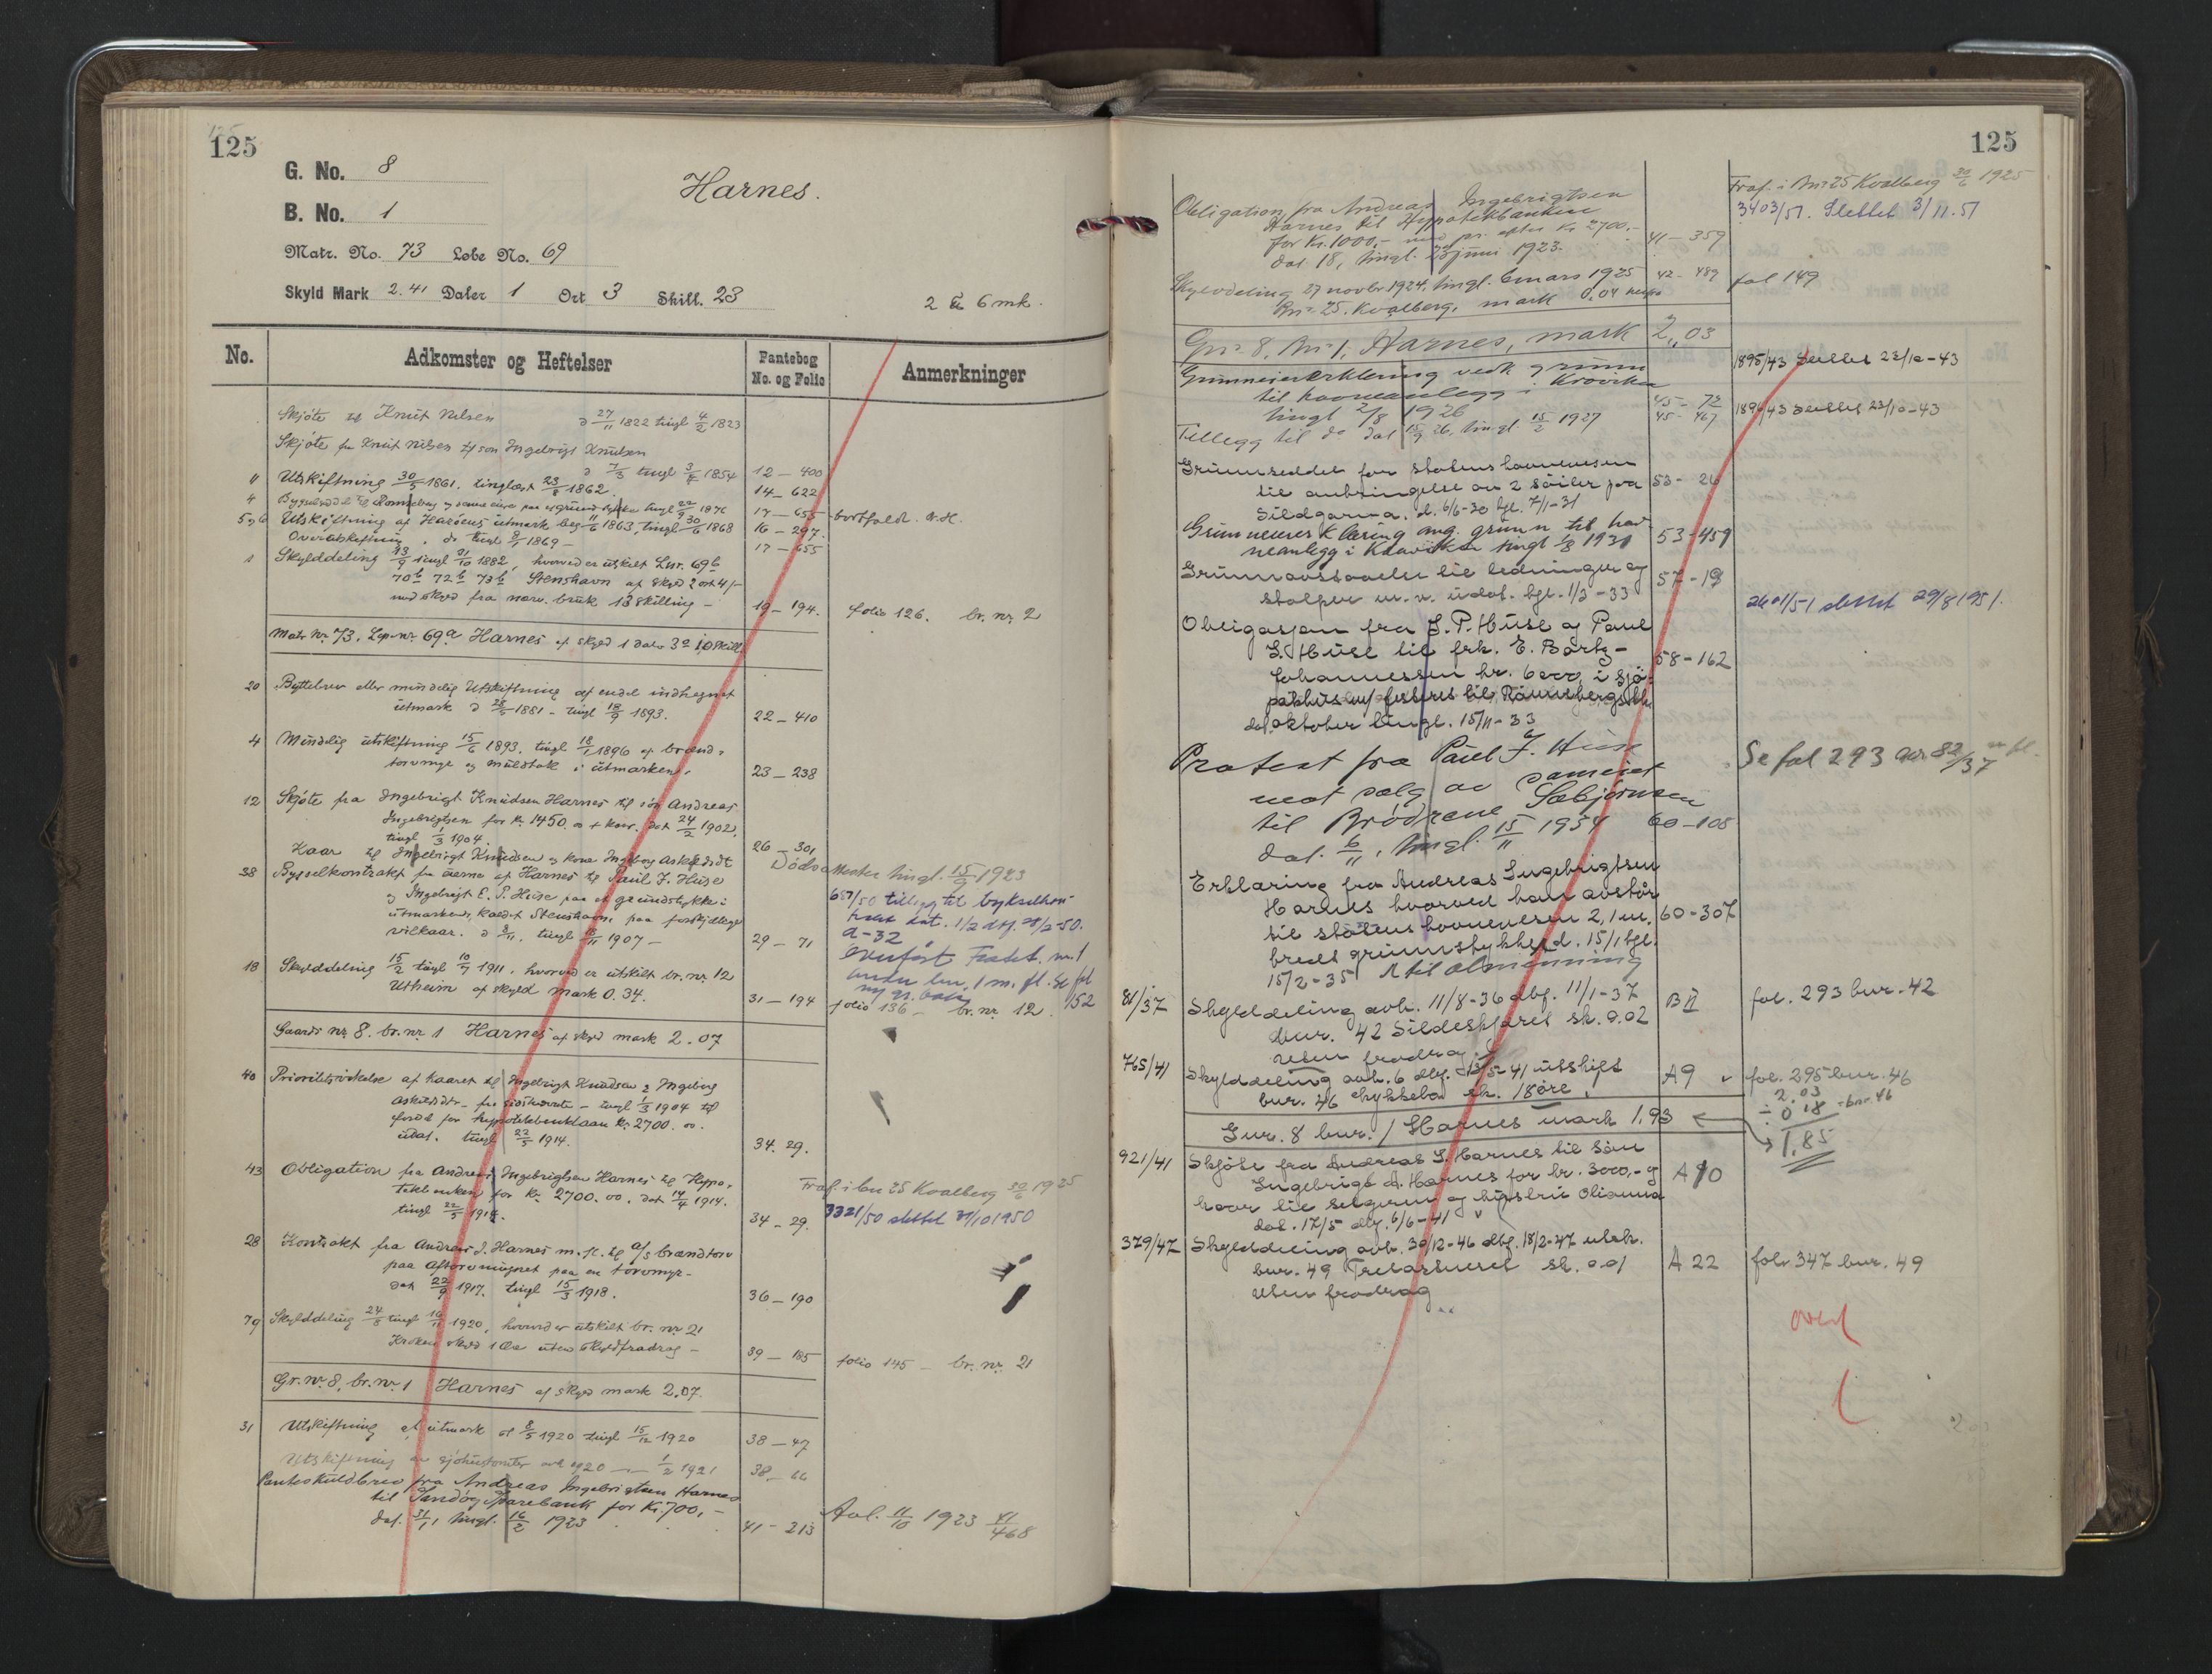 125
G. No. 8
Harnes.
B. No. 1
Matr. No. 73 Løbe No. 69
Skyld Mark 2.41 Daler 1 Ort 3 Skill. 23
2 6 mk.
No.
Adkomster og Heftelser
Pantebog No. og Folio
Anmerkninger
Skjøte til Knut Nilsen d 27/11 1822 tingl 4/2 1823
Skjøte fra Knut Nilsen til søn Ingebrigt Knutsen
d 7/3 tingl 1854 12 – 400
Utskiftning 30/5 1861. tinglæst 23/8 1862 14 – 622
17 – 655 bortfaldt.
5 og 6 Utskiftning af Harøens utmark beg 11/6 1863, tingl 30/6 1868 16 – 297.
Overutskiftning do tingl 1869 – 17 – 655
1 Skylddeling 13/9 tingl 31/10 1882, hvorved er utskilt Lnr. 69b
70b 72b 73b Stenshavn af skyld 2 ort 4/-
ned skyld fra nærv. bruk 13 skilling – 19 – 194. folio 126. br. nr. 2
Matr Nr 73. Løp-nr 69a Harnes af skyld 1 daler 3 o 10 skill
20 Byttebrev eller mindelig Utskiftning af endel indhegnet
utmark d 1881 – tingl 18/9 1893. 22 – 410
4 Mindelig utskiftning 15/6 1893. tingl 18/1 1896 af brænd-
torvmyr og muldtak i utmarken. 23 – 238
12 Skjøte fra Ingebrigt Knudsen Harnes til søn Andreas
Ingebrigtsen for Kr. 1450.00 + kaar. dat 24/2 1902.
tingl 1/3 1904. 26 – 301
Kaar til Ingebrigt Knudsen og kone Ingeborg Askildsdt
Dødsattester tingl. 15/9 1923
38 Bygselkontrakt fra eierne af Harnes til Paul J. Huse
og Ingebrigt E. P. Huse paa et grundstykke i
utmarken, kaldet Stenshavn, paa forskjellige
vilkaar. d 8/11, tingl 18/11 1907 – 29 – 71
657/50 tillegg til bykselkon-
trakt dat. 1/2 dbf. 28/2-50.
a-32
Overført
under bnr. 1 m. fl. Se fol
152
18 Skylddeling 15/2 tingl 10/7 1911. hvorved er utskilt br. nr. 12
Utheim af skyld mark 0.34. 31 – 194 folio 136 – br. nr. 12.
Gaards nr 8. br. nr 1 Harnes af skyld mark 2.07
40 Prioritetsvikelse af kaaret til Ingebrigt Knudsen & Ingeborg
Askildsdtr – tingl 1/3 1904 til
fordel for hypotekbanklaan Kr. 2700.00.
udat. tingl 22/5 1914. 34. 29.
43 Obligation fra Andreas Ingebrigtsen Harnes til Hypo-
tekbanken for Kr. 2700.00. dat 14/4 1914.
tingl 22/5 1914. 34 – 29.
Fraf. i bnr 25 Kvalberg 30/6 1925
3321/50 slettet 31/10 1950
28 Kontrakt fra Andreas I. Harnes m. fl. til A/S brændtorv
paa aftorvningsret paa en torvmyr –
dat 22/9 1917. tingl 15/3 1918. 36 – 190
79 Skylddeling 24/8 tingl 16/11 1920, hvorved er utskilt br. nr 21
Kroken skyld 1 øre uten skyldfradrag – 39 – 185 folio 145 – br. nr. 21
Gr. nr 8. br. nr 1 Harnes af skyld mark 2.07.
31 Utskiftning af utmark af 8/5 1920 tingl 15/12 1920 38 – 47
Utskiftning av sjøhustomter avh 1920 — 1/2 1921 38 – 66
Panteskuldbrev fra Andreas Ingebrigtsen Harnes
til Sandøy Sparebank for Kr. 700,-
dat. 31/1, tingl. 16/2 1923 41 – 213 Avl. 11/10 1923 41/468
125
Obligation fra Andreas Ingebrigtsen
Harnes til Hypotekbanken
for Kr. 1000,- med pr. efter Kr 2700.-
dat. 18, tingl. 23 juni 1923. 41 – 359
Fraf. i bnr 25 Kvalberg 30/6 1925
3403/51. Slettet 3/11. 51
Skylddeling 27 novbr 1924, tingl. 6 mars 1925 42 – 489 fol 149
bnr 25. Kvalberg, mark 0.04
Gnr 8, bnr 1, Harnes, mark 2,03
Grunneiererklering vedk grunn
til havneanlegg i Krovika
tingl 2/8 1926 45 – 72 1895/43 slettet 23/10-43
Tillegg til do dat 15/9 26, tingl. 15/2 1927 45 – 467 1896/43 slettet 23/10-43
Grunnseddel for statens havnevesen
til anbringelse av 2 søiler paa
Sildgarna. d. 6/6-30 tgl. 7/1-31 53 – 26
Grunneiererklæring ang. grunn til hav-
neanlegg i Kraavika tingl 1/8 1931 53 – 459
Grunnavstaaelse til ledninger og
stolper m. v. udat. tgl. 1/3-33 57 – 19
2601/51 slettet 29/8 1951.
Obligasjon fra J. P. Huse og Paul
J. Huse til frk. E. Bartz-
Johannessen kr. 6000, i sjø-
pakhus m/ festerett til
dat. oktober tingl. 15/11-33 58 – 162
Protest fra Paul J. Huse
mot salg av sameiet
til Brødrene Sæbjørnsen
dat. 6/11, tingl. 15/11 1934 60 – 108
Se fol 293 82/37
Erklæring fra Andreas Ingebrigtsen
Harnes hvorved han avstår
til statens havnevesen 2,1 m.
bredt grunnstykke d. 15/1 tgl.
15/2-35 til almenning 60 – 307
81/37 Skylddeling avh. 11/8-36 dbf. 11/1-37 B II fol. 293 bnr. 42
bnr. 42 Sildeskjæret sk. 0.02
uten fradrag
765/41 Skylddeling avh. 6 dbf. 13/5-41 utskift A 9 fol. 295 bnr. 46
bnr. 46 sk. 18 øre
2.03
÷ 0 18 - bnr 46
1,85
Gnr. 8 bnr. 1 Harnes mark 1,93
921/41 Skjøte fra Andreas I. Harnes til sønn
Ingebrigt A. Harnes for kr. 3000,- og
kaar til selgeren og hustru Olianna
dat. 17/5 dbf. 6/6-41 A 10
379/47 Skylddeling avh. 30/12-46 dbf. 18/2-47 utsk.
bnr. 49 sk. 0.01
uten fradrag A 22 fol. 347 bnr. 49